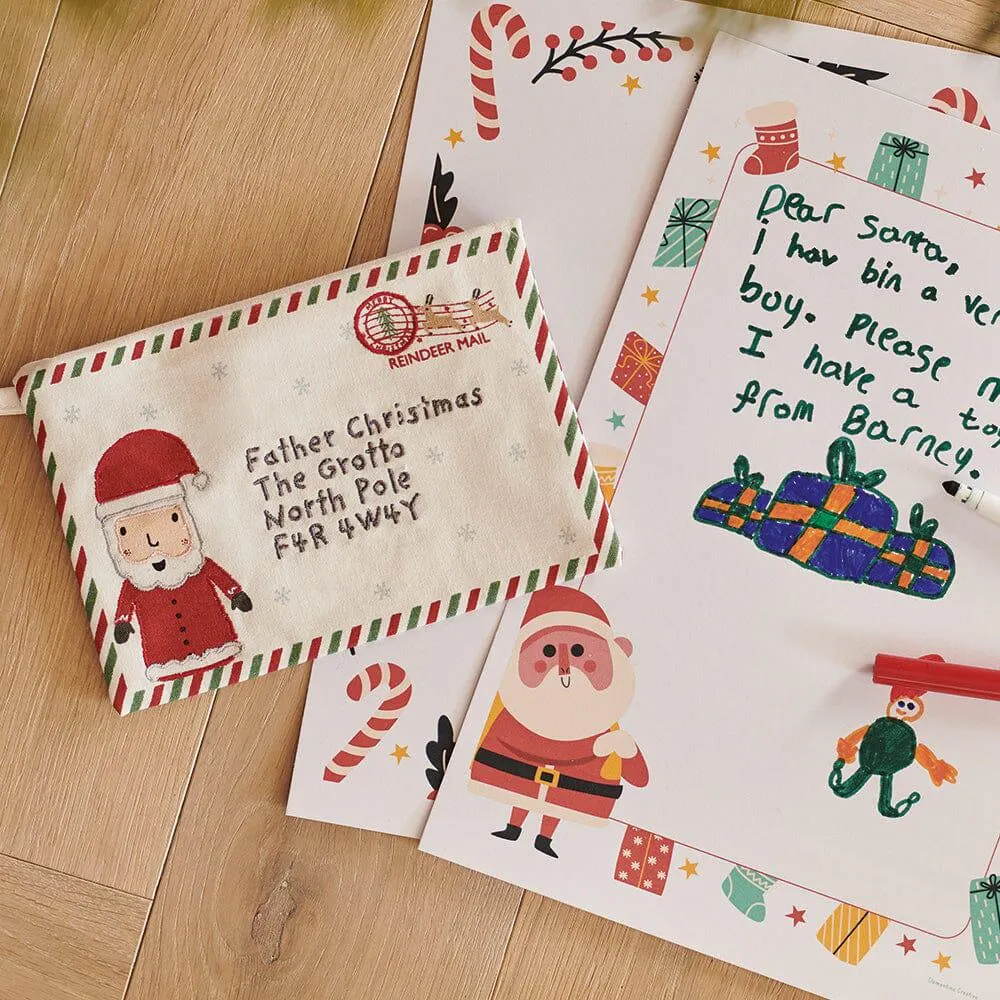 MERRY
CHRISTMAS
REINDEER MAIL
Father Christmas
The Grotto
North Pole
F4R 4W4Y
Dear Santa,
i hav bin a
boy. Please
I have a
from Barney.
Clementine Creative